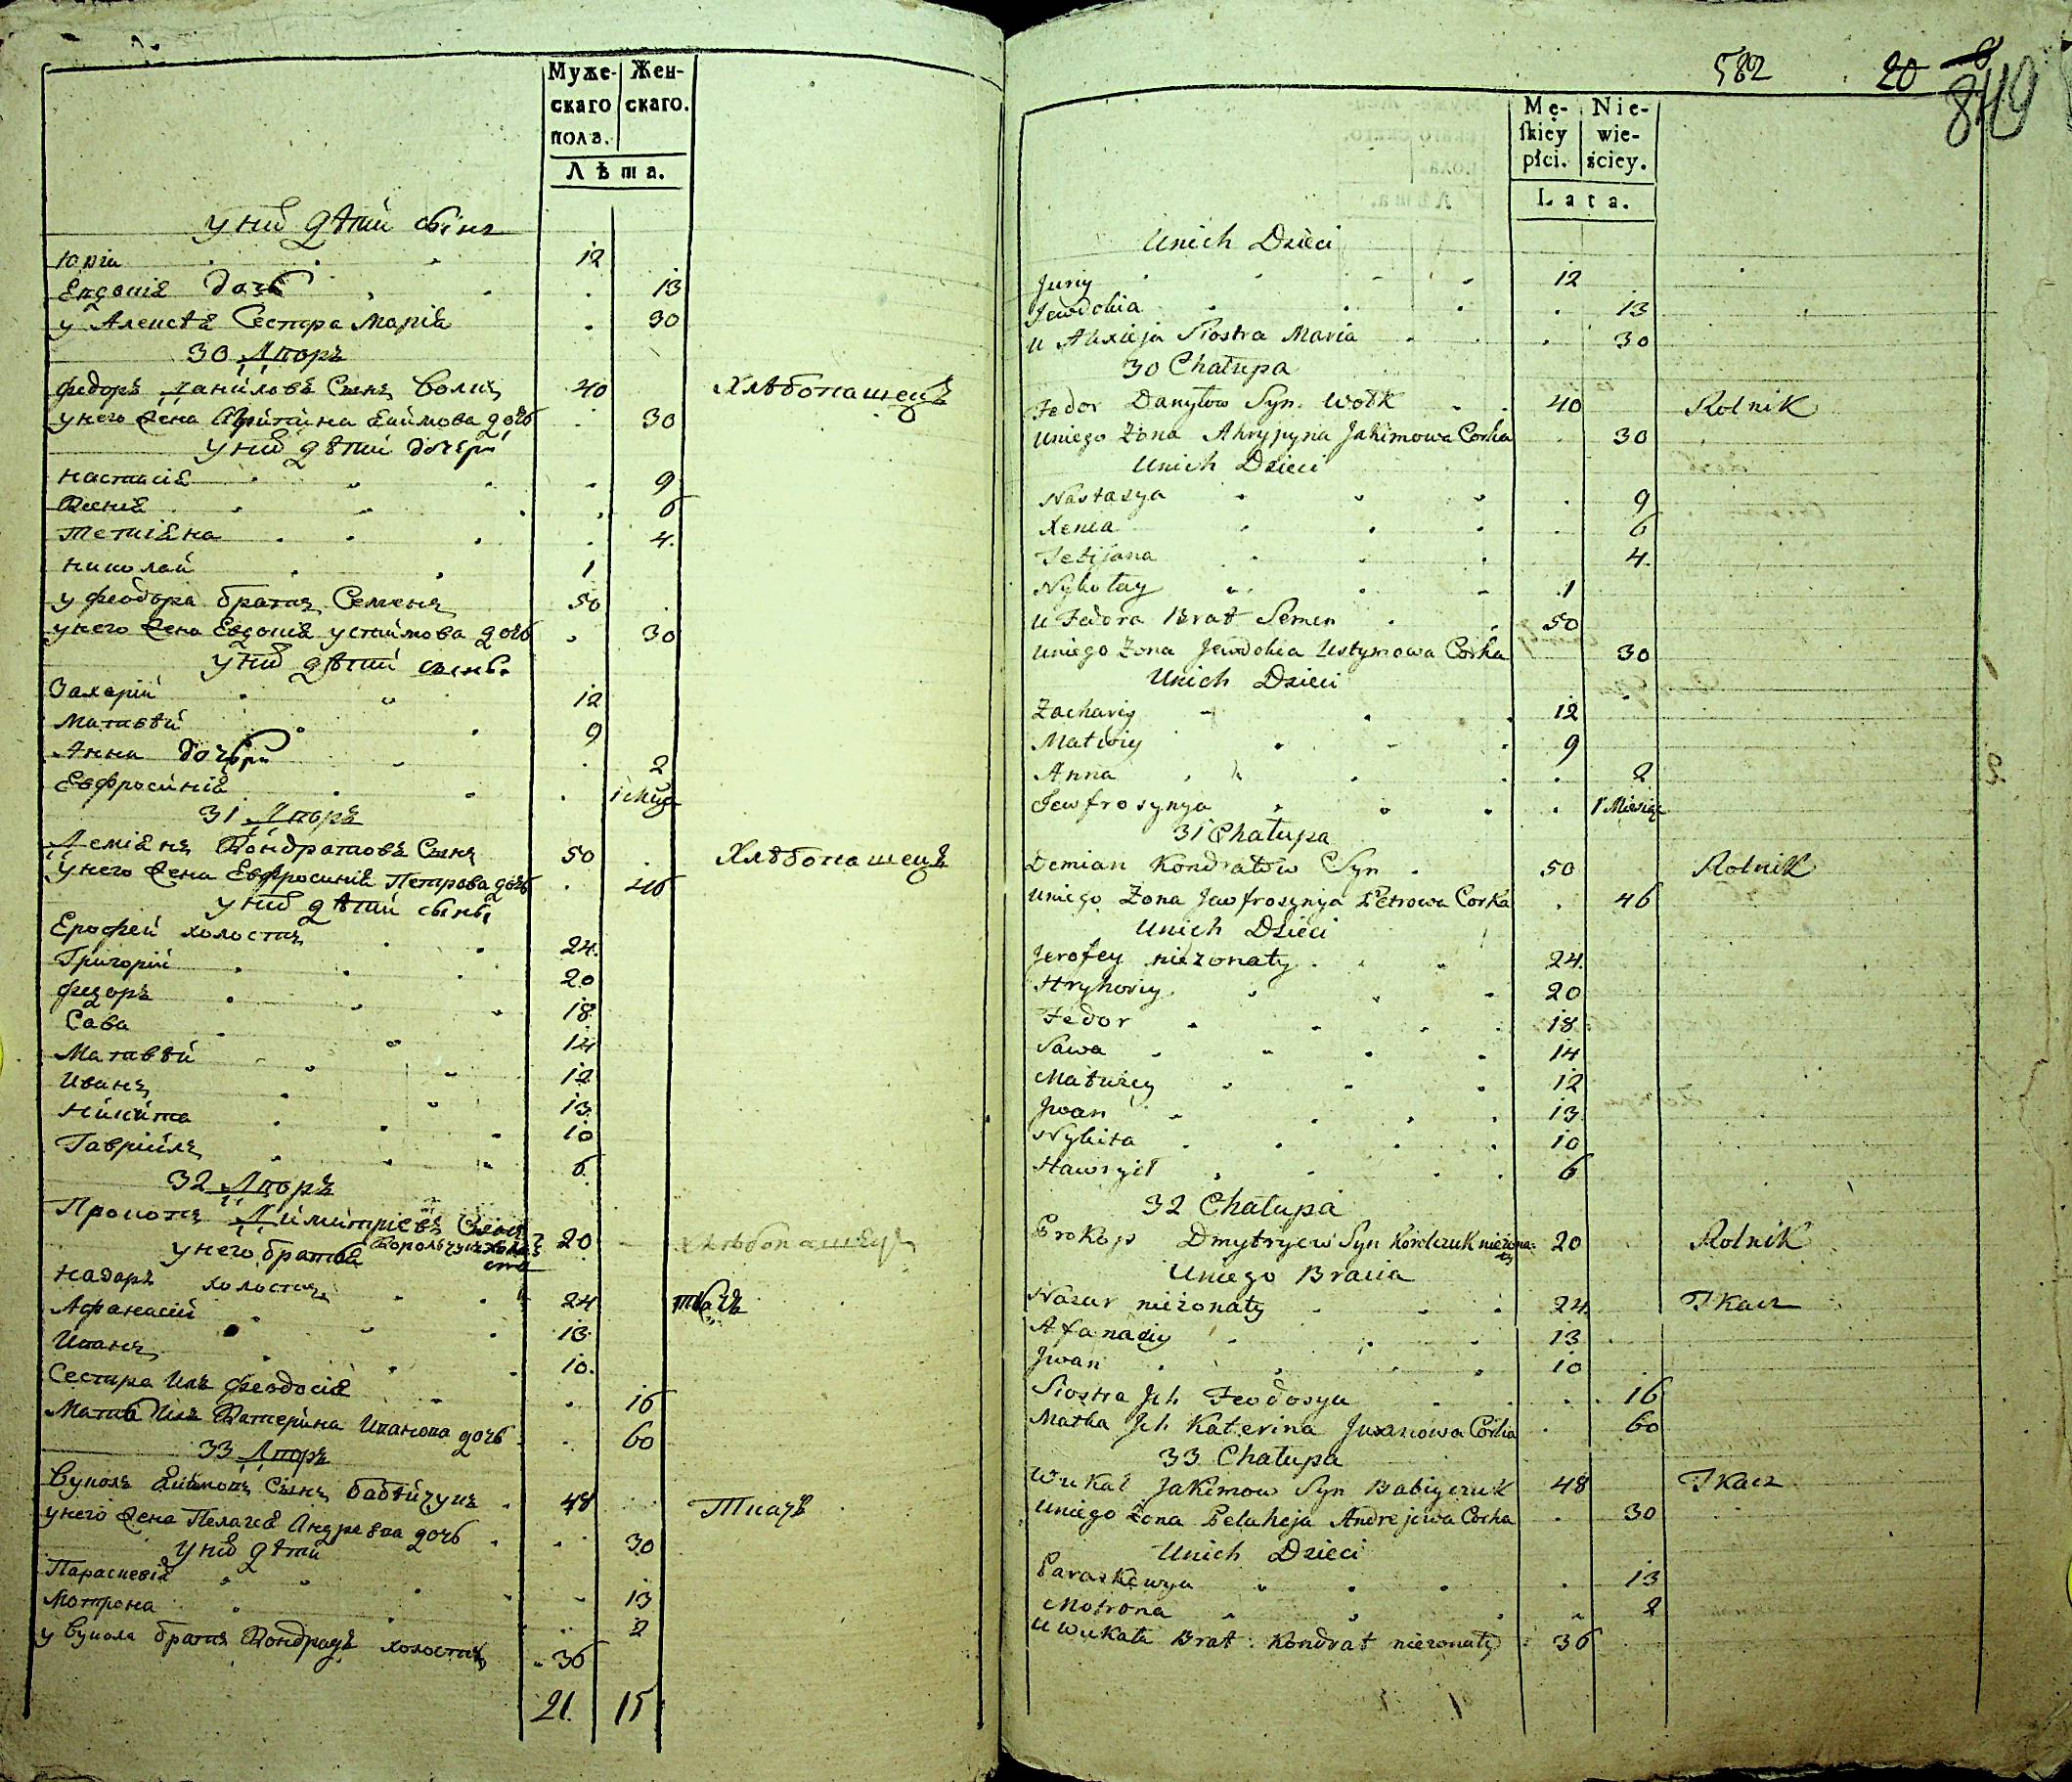 Муже- Жен-
скаго скаго.
пола.
Лѣта.
у нихъ дѣтй сынъ
Юрiи 12
Евдокiя дочь 13
у Алексѣя Сестра Марiя 30
30 Дворъ
Федоръ Данйловъ Сынъ Волкъ 40 Хлѣбопашецъ
у него жена Акйпйна Екймова дочь 30
у нихъ дѣтй дочери
Настасiя 9
Ксенiя 6
Тетiяна 4
Николай 1
у Феодора братъ Семенъ 50
у него жена Евдокiя Устймова дочь 30
у нихъ дѣтй сынь
Захарiй 12
Матвѣй 9
Анна дочери 2
Евфросйнiя 1 мѣся
31 Дворъ
Демiянъ Кондратовъ Сынъ 50 Хлѣбопашецъ
у него жена Евфросинiя Петрова дочь 46
у нихъ дѣтй сыны
Ерофей холостъ 24
Григорiй 20
Федоръ 18
Сава 14
Матвѣй 12
Иванъ 13
Нйкйта 10
Гаврiилъ 6
32 Дворъ
Прокопъ Дймитрiевъ Сынъ Корольчукъ 20 Хлѣбопашецъ
у него братья
Назаръ холостъ 24 ткачъ
Афанасiй 13
Иванъ 10
Сестра Ихъ Феодосiя 16
Мать Ихъ Катерйна Иванова дочь 60
33 Дворъ
Вуколъ Якимовъ Сынъ Бабѣйчукъ 48 Ткачъ
у него жена Пелагея Андреева дочь 30
у нихъ дѣтй
Параскевiя 13
Мотрона 2
у Вукола братъ Кондратъ холостъ 36
21 15
582 20 849
Mę- Nie-
ſkiey wie-
płci. ściey.
Lata.
Unich Dzieci
Juriy 12
Jewdokia 13
u Alexieja Siostra Maria 30
30 Chałupa
Fedor Danyłow Syn Wołk 40 Rolnik
Uniego Żona Ahrypyna Jakimowa Corka 30
Unich Dzieci
Nastasya 9
Xenia 6
Tetijana 4
Nykołay 1
u Fedora Brat Semen 50
Uniego Żona Jewdokia Ustymowa Corka 30
Unich Dzieci
Zachariy 12
Matwiy 9
Anna 2
Jewfrosynya 1 Miesiąc
31 Chałupa
Demian Kondratow Syn 50 Rolnik
Uniego Żona Jawfrosynya Petrowa Corka 46
Unich Dzieci
Jerofey nieżonaty 24
Hryhoriy 20
Fedor 18
Sawa 14
Matwiey 12
Jwan 13
Nykita 10
Hawryił 6
32 Chałupa
Prokop Dmytryew Syn Korolczuk nieżonaty 20 Rolnik
Uniego Bracia
Nazar nieżonaty 24 Tkacz
Afanasiy 13
Jwan 10
Siostra Jch Feodosya 16
Matka Jch Katerina Jwanowa Corka 60
33 Chałupa
Wukał Jakimow Syn Babiyczuk 48 Tkacz
Uniego Żona Pelaheja Andrejewa Corka 30
Unich Dzieci
Paraskewya 13
Motrona 2
U Wukała Brat Kondrat nieżonaty 36